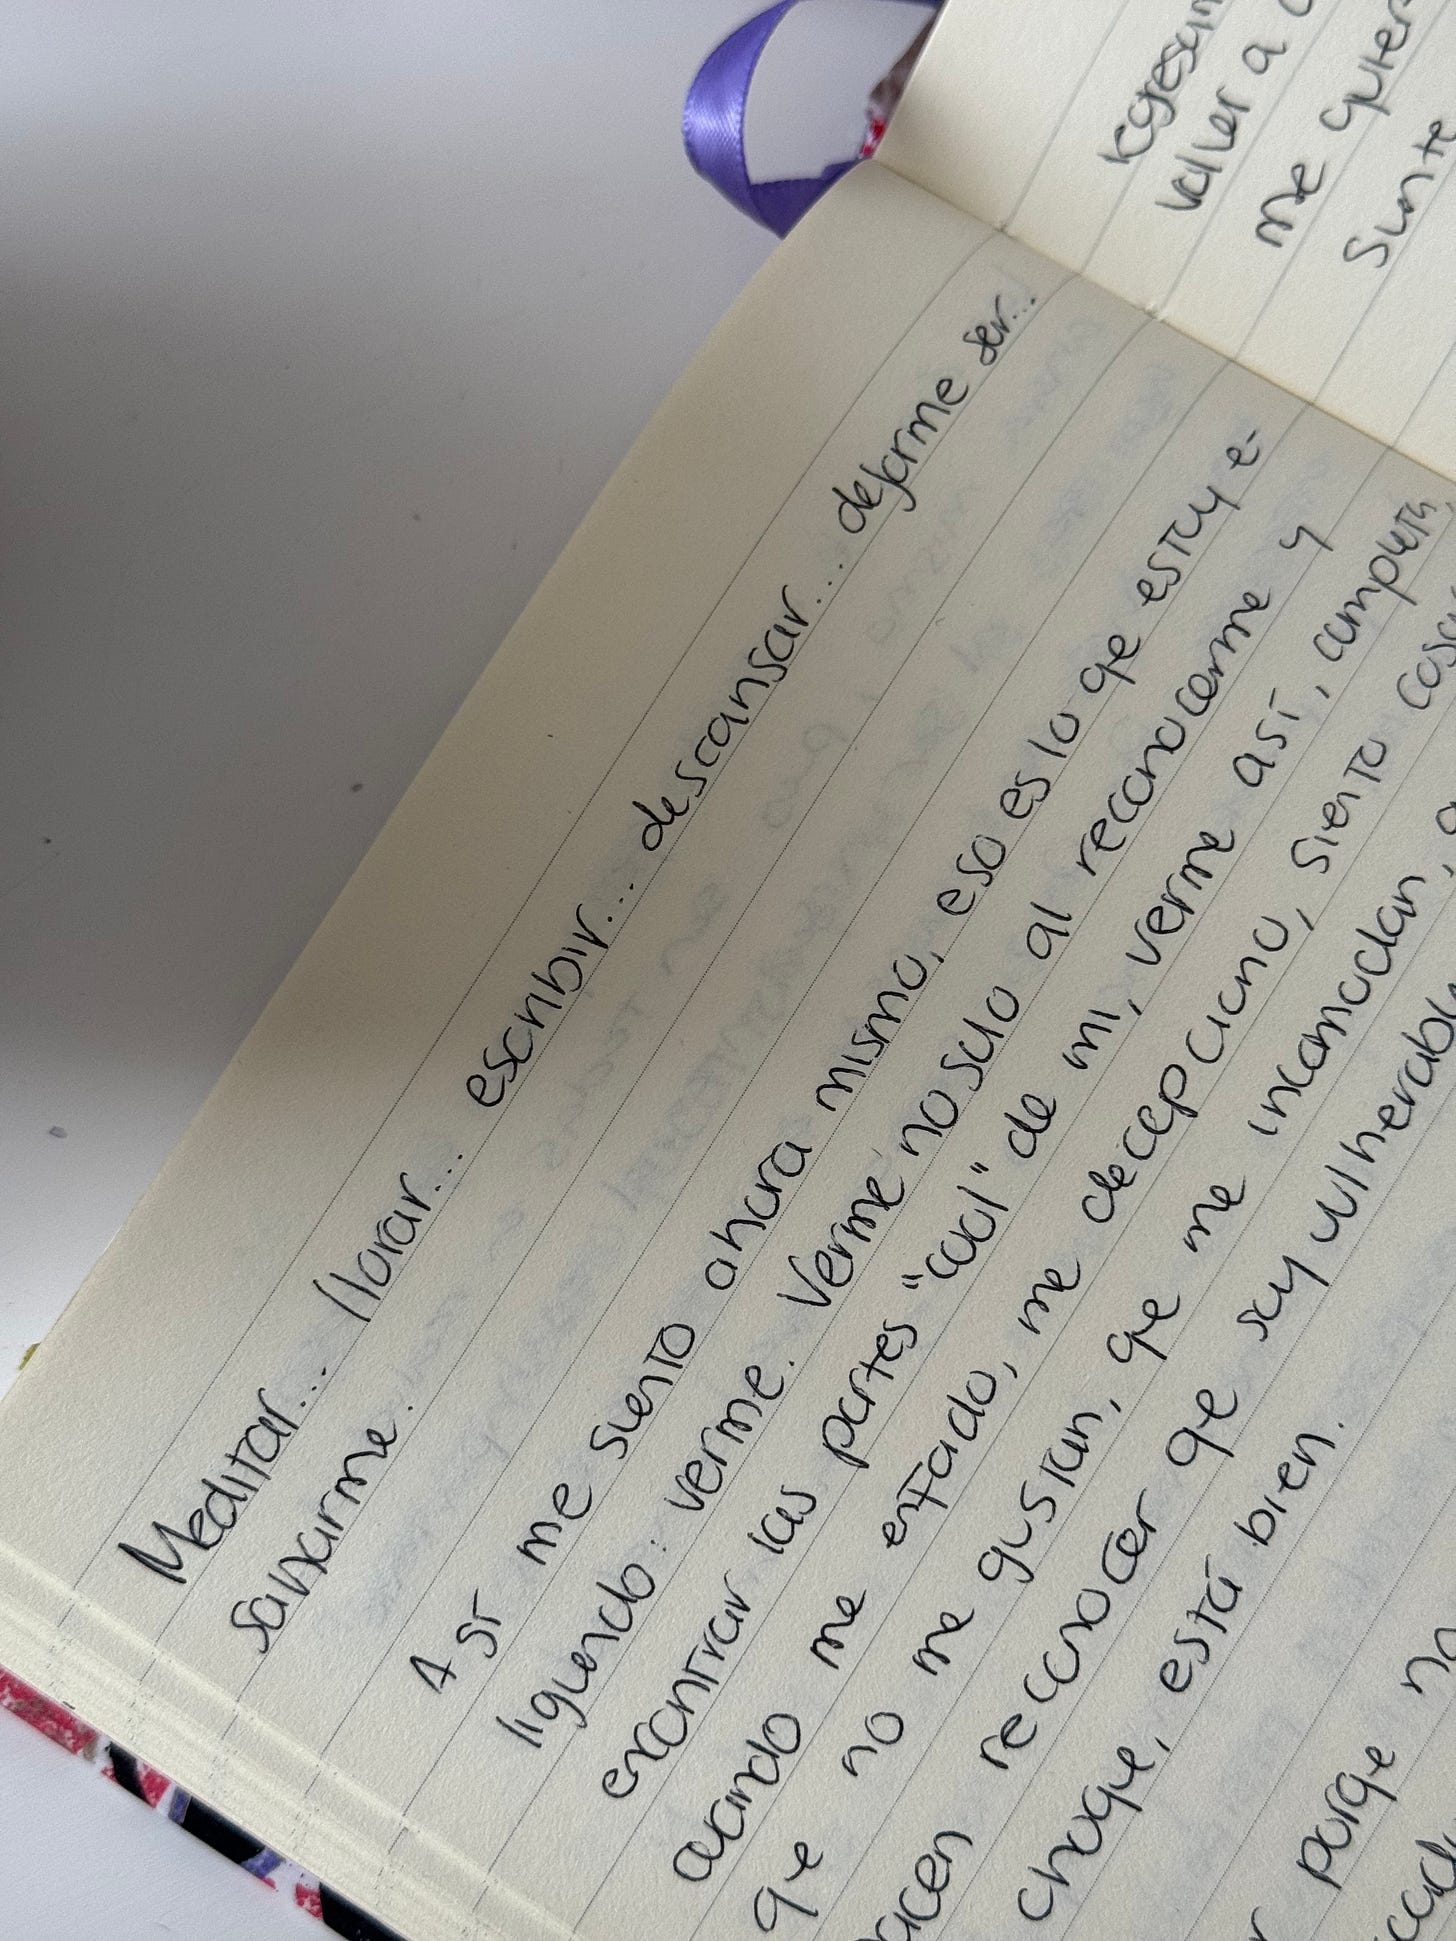 regresan
valler a
me quier
sunte
Meditar... llorar... escribir... descansar... dejarme ser...
sanarme.
Así me siento ahora mismo, eso es lo qe estoy e-
ligiendo: verme. Verme no solo al reconocerme y
encontrar las partes "cool" de mi, verme así, cumpleta
cuando me enfado, me decepciono, siento cosas
qe no me gustan, qe me incomodan,
hacen reconocer qe soy vulnerable
choque, está bien.
porqe no